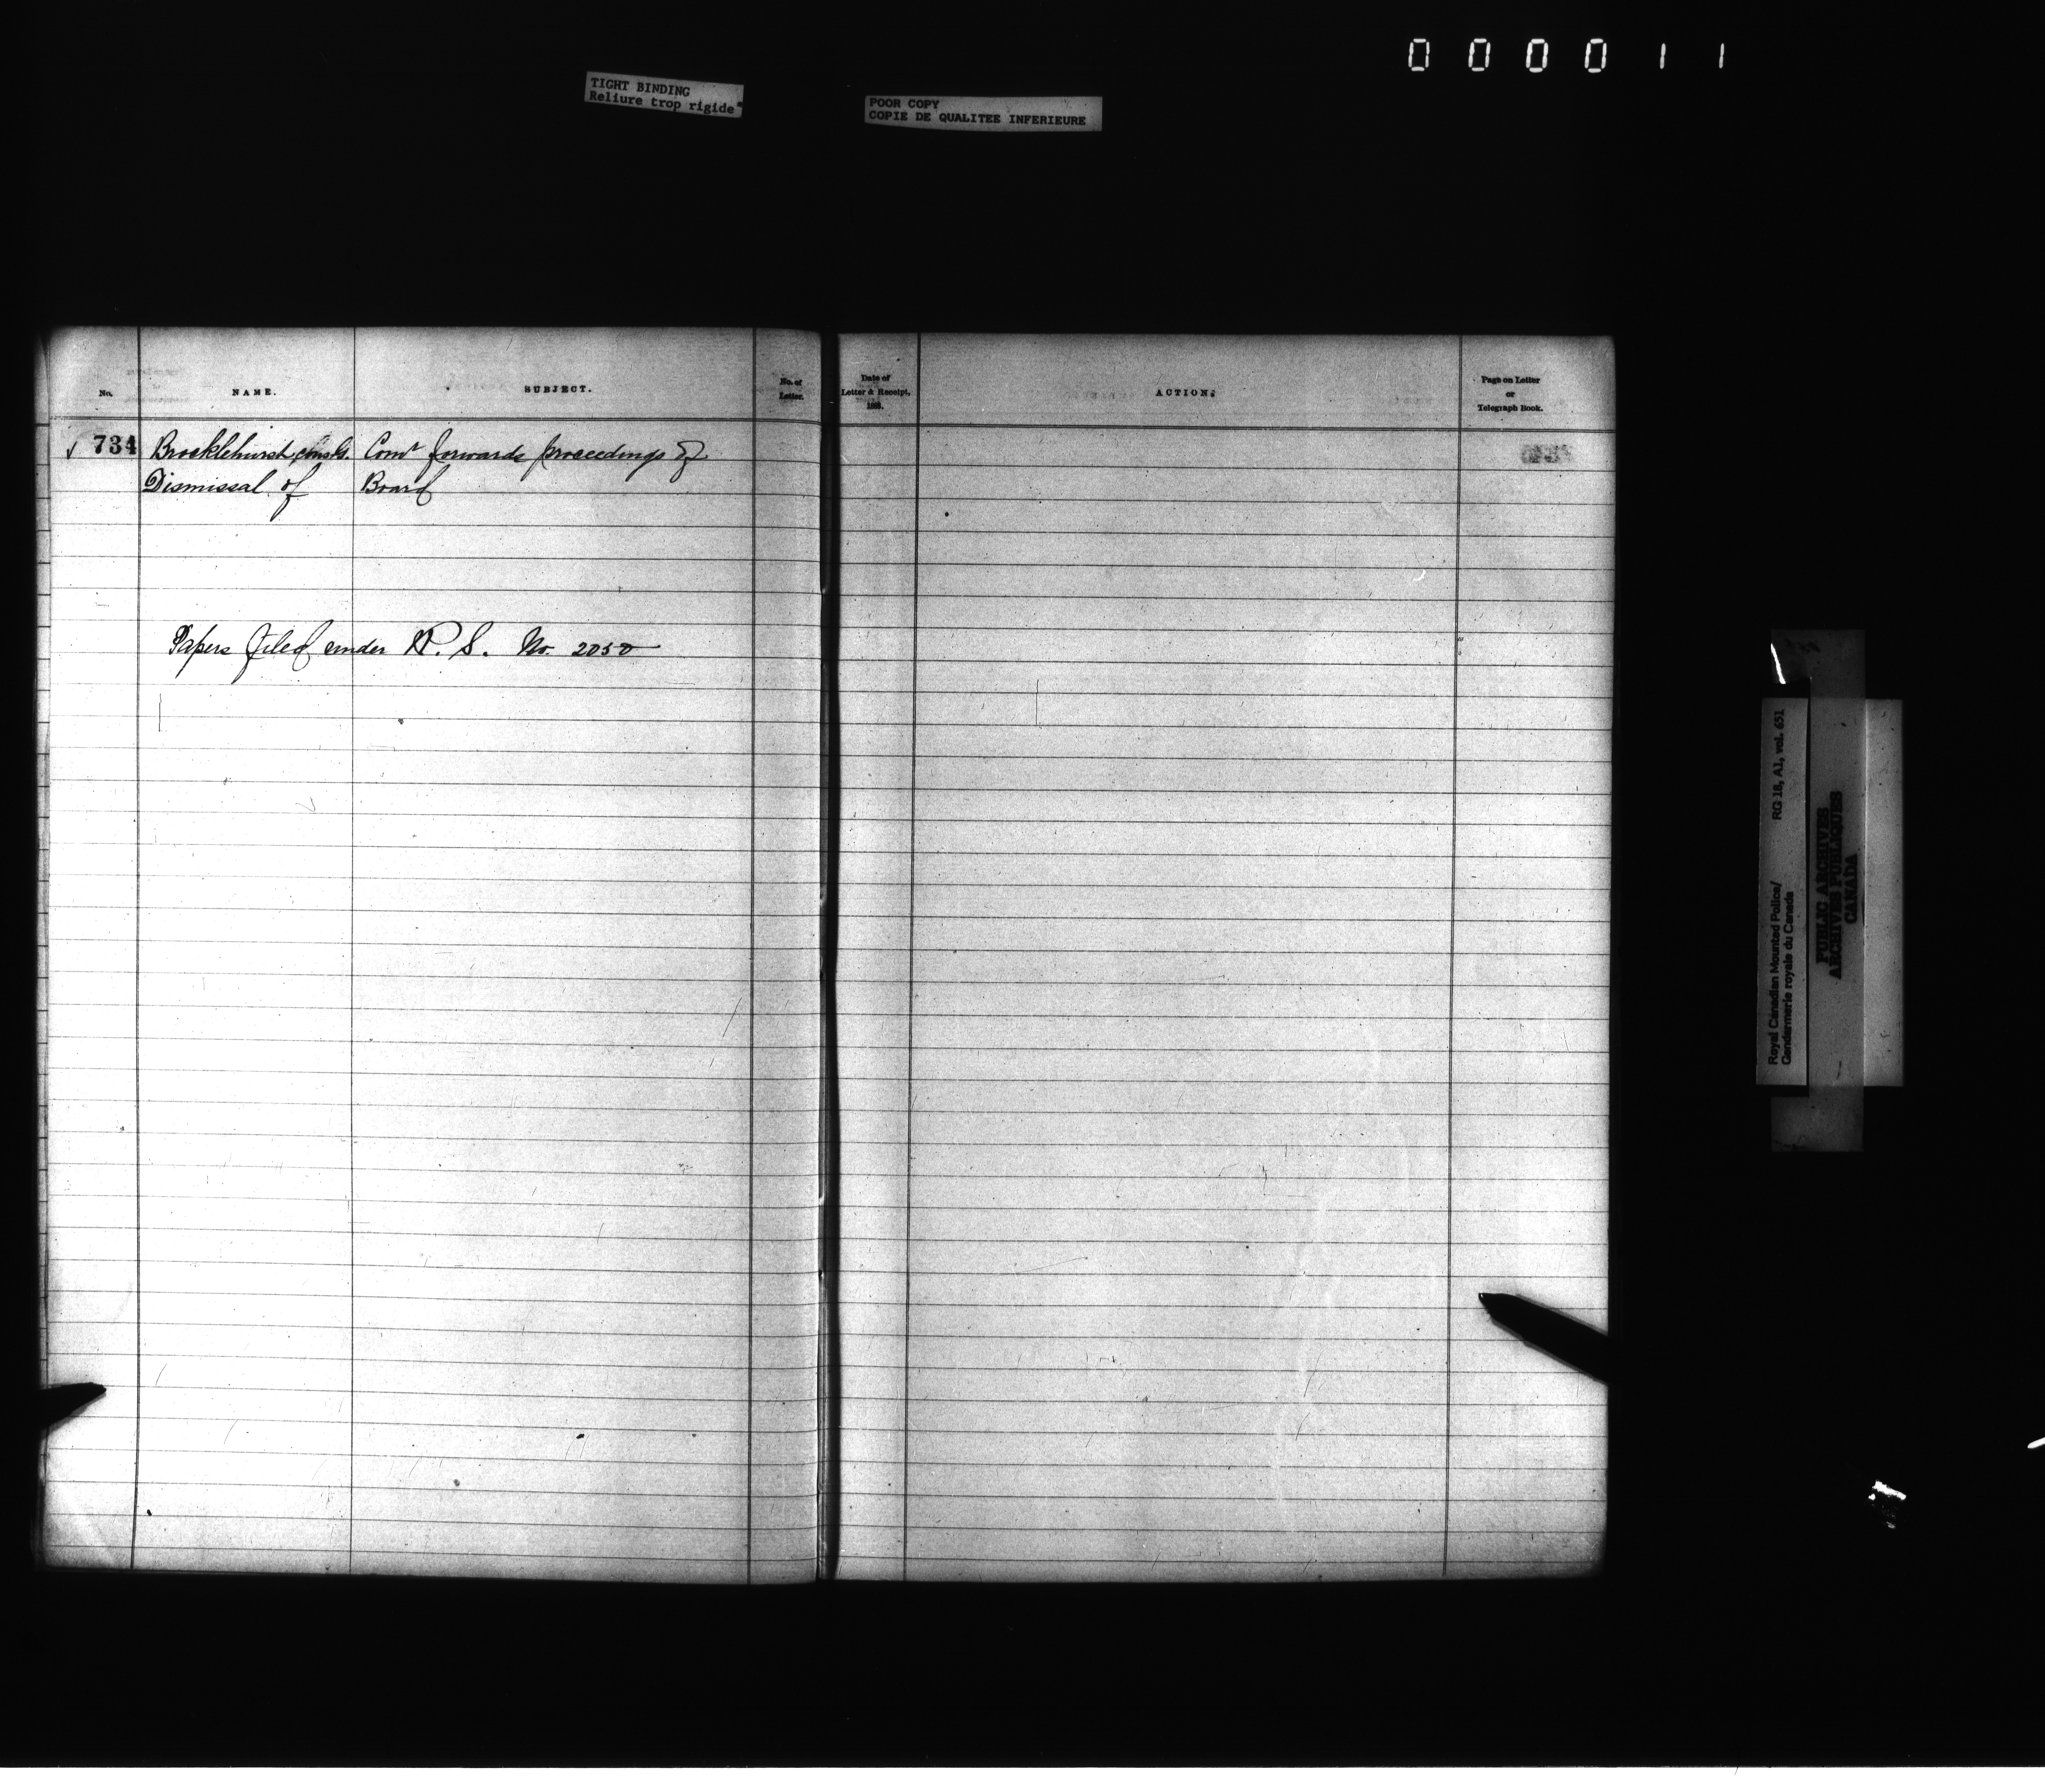 000011
TIGHT BINDING
Reliure trop rigide
POOR COPY
COPIE DE QUALITEE INFERIEURE
No.
NAME.
SUBJECT.
No. of
Letter.
Date of
Letter & Receipt,
188.
ACTION.
Page on Letter
or
Telegraph Book.
734 Brocklehurst, Const. Comr forwards proceedings of
Dismissal of Board
Papers filed under N. S. No. 2050
Royal Canadian Mounted Police/ RG 18, A1, vol. 651
Gendarmerie royale du Canada
PUBLIC ARCHIVES
ARCHIVES PUBLIQUES
CANADA